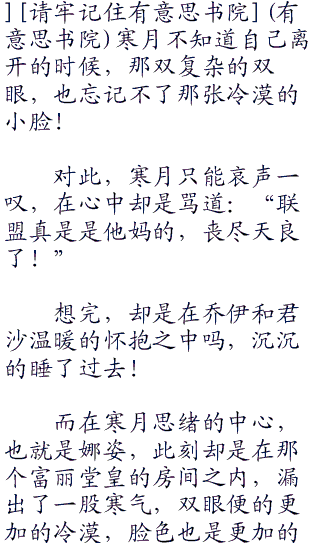 ][请牢记住有意思书院](有
意思书院)寒月不知道自己离
开的时候，那双复杂的双
眼，也忘记不了那张冷漠的
小脸！
对此，寒月只能哀声一
叹，在心中却是骂道：“联
盟真是是他妈的，丧尽天良
了！”
想完，却是在乔伊和君
沙温暖的怀抱之中吗，沉沉
的睡了过去！
而在寒月思绪的中心，
也就是娜姿，此刻却是在那
个富丽堂皇的房间之内，漏
出了一股寒气，双眼便的更
加的冷漠，脸色也是更加的